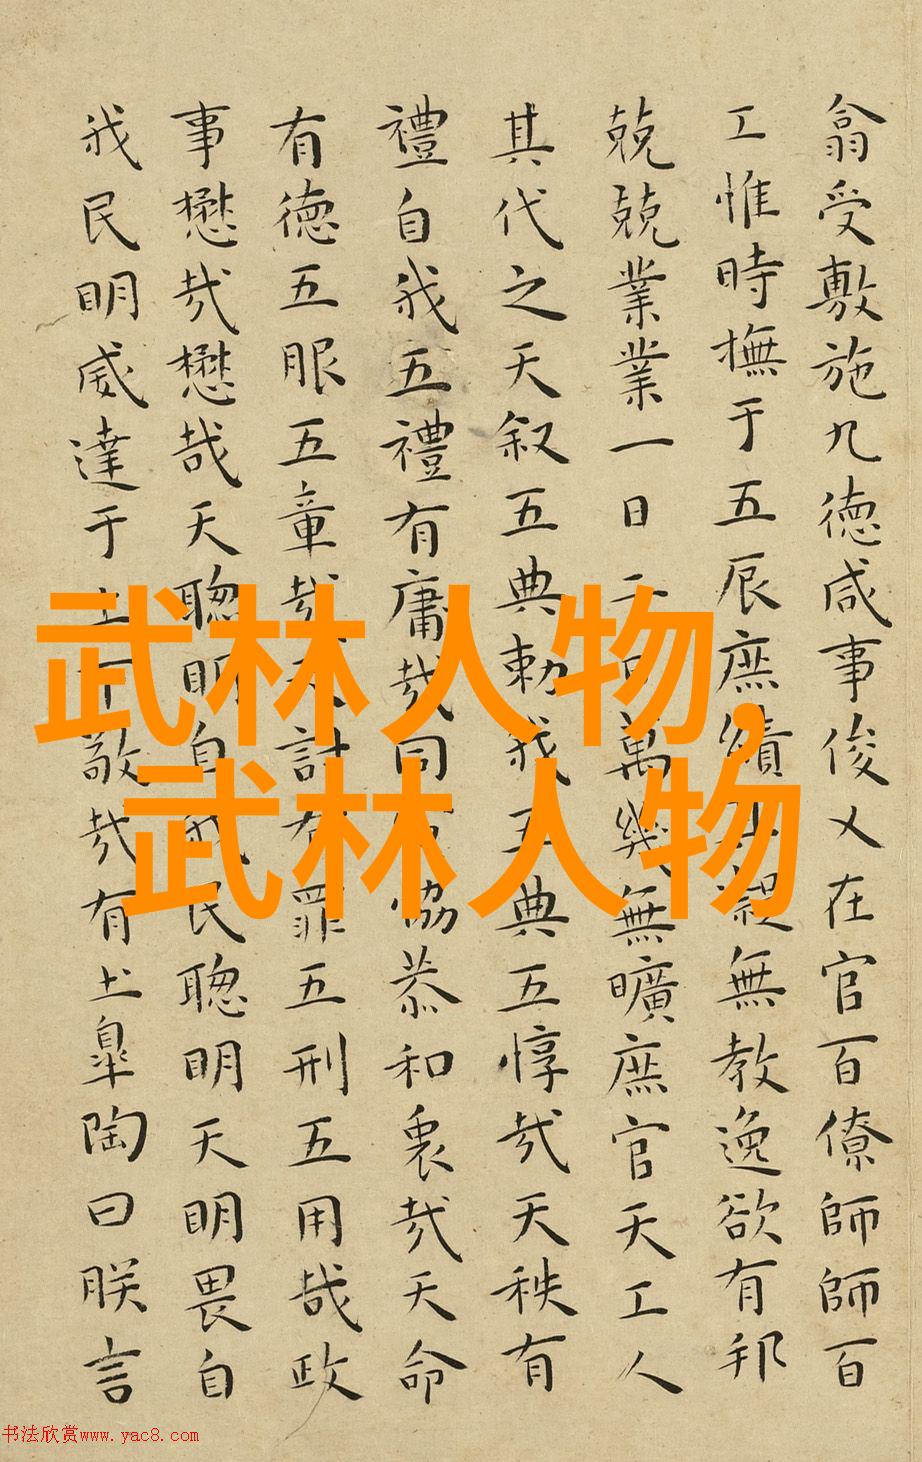 翕受敷施九德咸事俊乂在官百僚師師百
工惟時撫于五辰庶績其凝無教逸欲有邦
兢兢業業一日二日萬幾無曠庶官天工人
其代之天叙五典勅我五典五惇哉天秩有
禮自我五禮有庸哉同寅協恭和衷哉天命
有德五服五章哉天討有罪五刑五用哉政
事懋哉懋哉天聰明自我民聰明天明畏自
我民明威達于上下敬哉有土皋陶曰朕言
武林人物,
武林人物
书法欣赏www.yac8.com